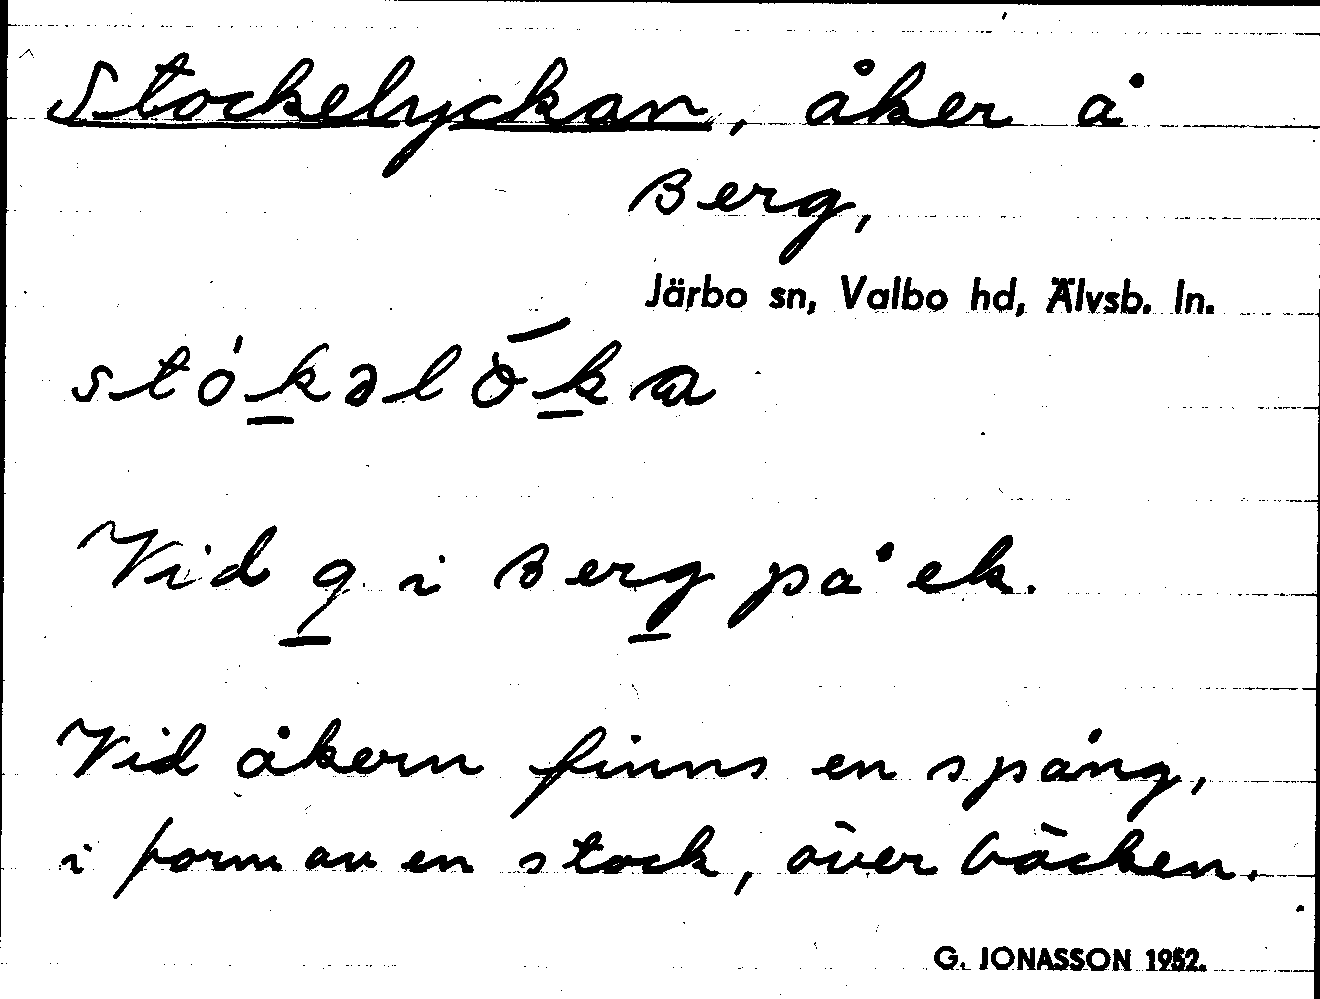 Stockelyckan, åker å
Berg,
Järbo sn, Valbo hd, Älvsb. ln.
stókəlö̀ka
Vid g i Berg på ek.
Vid åkern finns en spång,
i form av en stock, över bäcken.
G. JONASSON 1952.